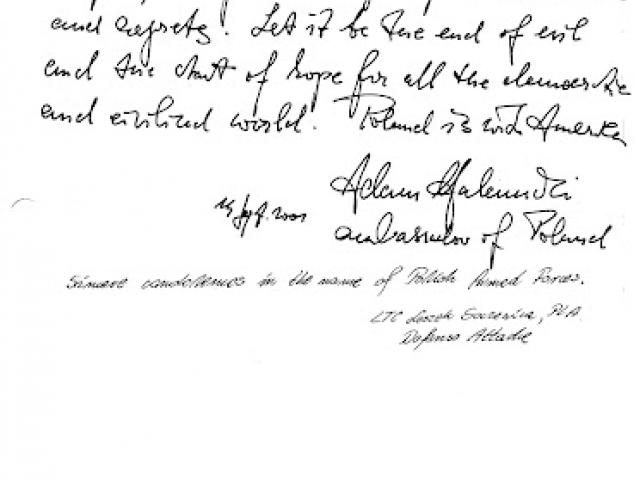 and regrets! Let it be the end of evil
and the start of hope for all the democratic
and civilized world. Poland is with America
Adam Halamski
14 Sept. 2001
ambassador of Poland
Sincere condolences in the name of Polish Armed Forces.
LTC Leszek, PLA
Defense Attaché